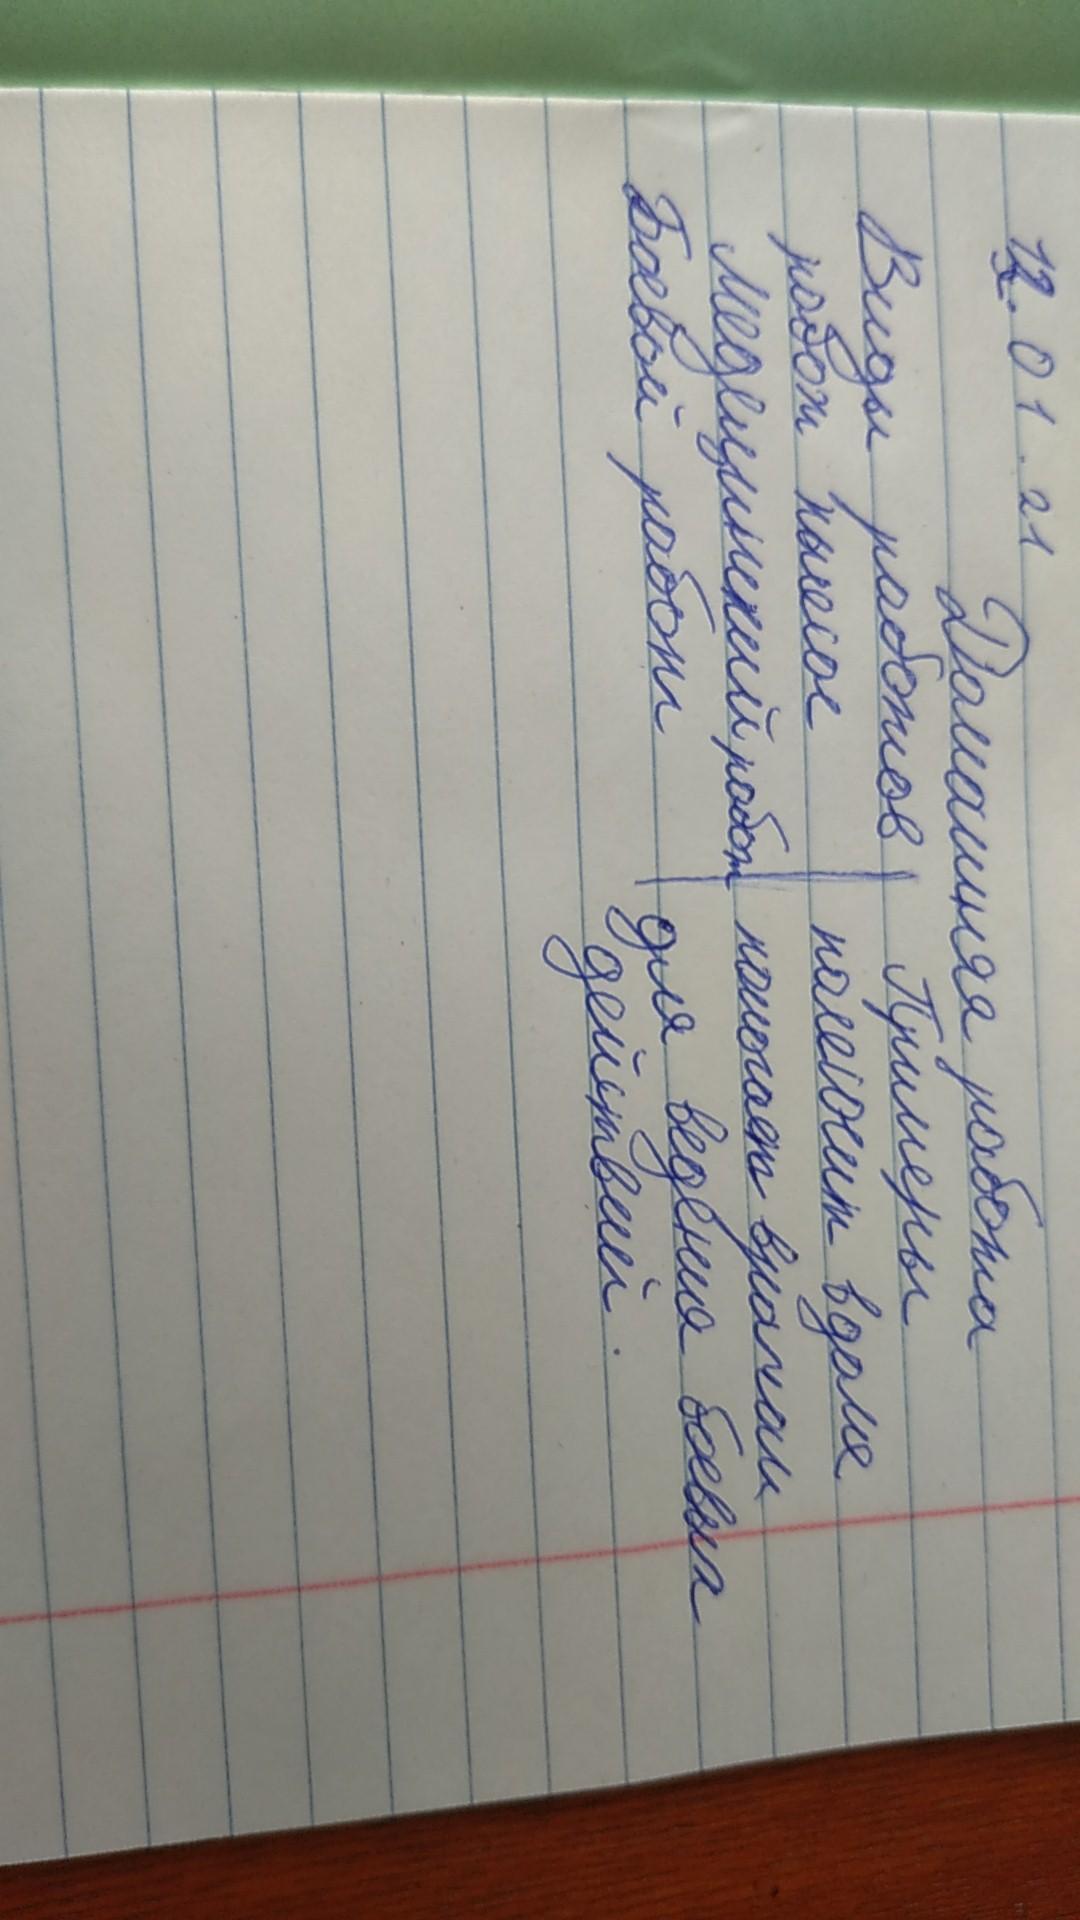 12.01.21
Домашняя работа
Виды роботов | Примеры
робот пылесос | пылесосит вдоме
Медецинский робот | помогает врачам
Боевой робот | для ведения боевых
действий.